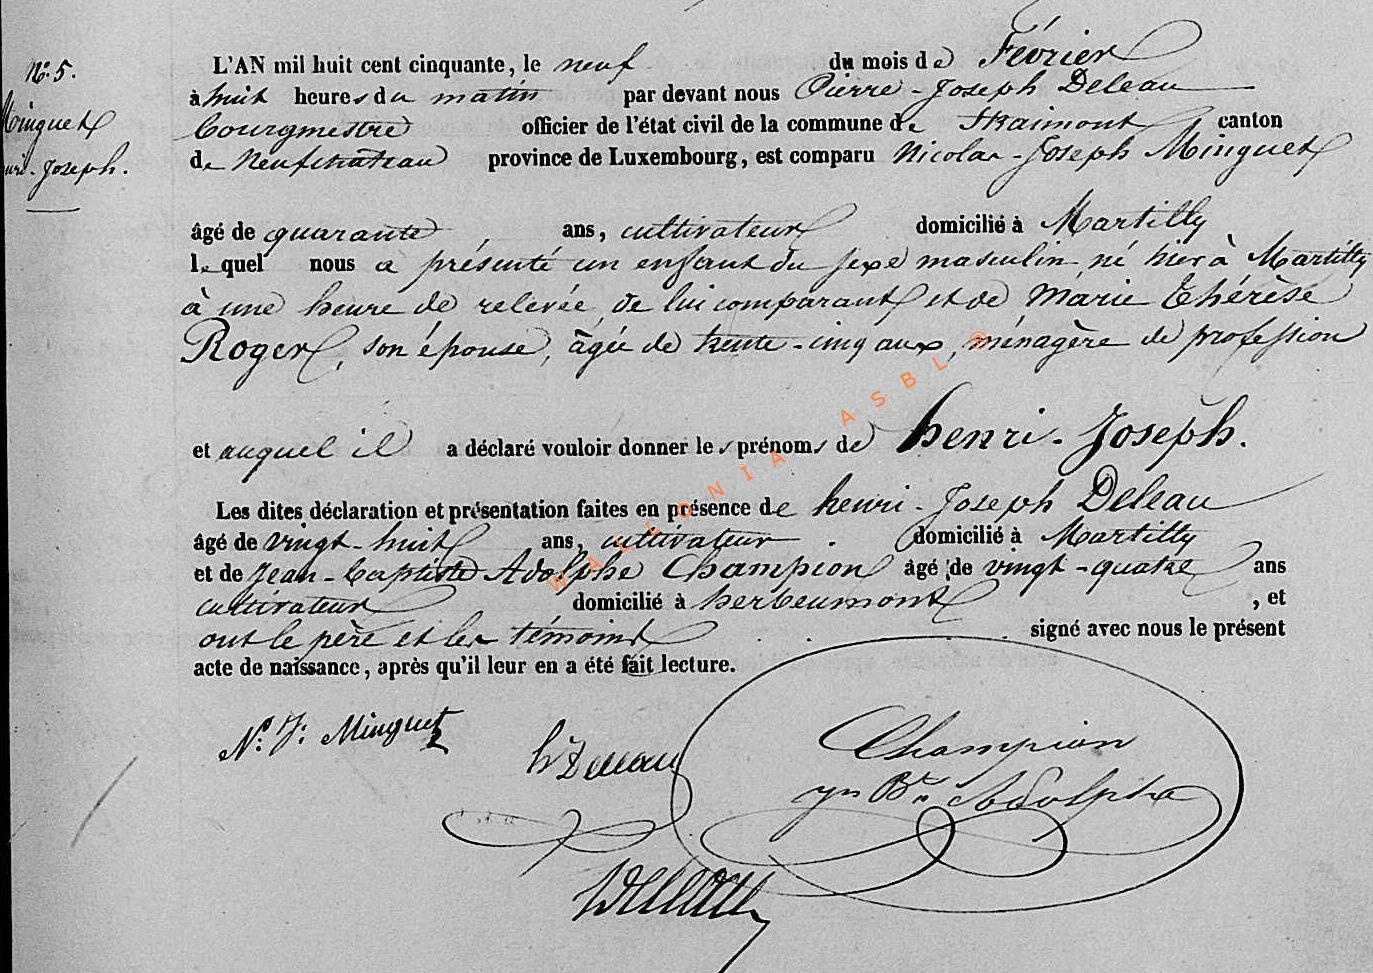 N°. 5.
Minguet
Henri-Joseph.
L'AN mil huit cent cinquante, le neuf du mois de Février
à huit heures du matin par devant nous Pierre-Joseph Deleau
bourgmestre officier de l'état civil de la commune de Straimont canton
de Neufchateau province de Luxembourg, est comparu Nicolas-Joseph Minguet
âgé de quarante ans, cultivateur domicilié à Martilly
lequel nous a présenté un enfant du sexe masculin né hier à Martilly
à une heure de relevée de lui comparant et de Marie Thérèse
Roger, son épouse, âgée de trente-cinq ans, ménagère de profession
et auquel il a déclaré vouloir donner les prénoms de henri-Joseph.
Les dites déclaration et présentation faites en présence de henri-Joseph Deleau
âgé de vingt-huit ans, cultivateur domicilié à Martilly
et de Jean-baptiste Adolphe Champion âgé de vingt-quatre ans
cultivateur domicilié à herbeumont, et
ont le père et les témoins signé avec nous le présent
acte de naissance, après qu'il leur en a été fait lecture.
N. J. Minguet
hr Deleau
Champion
Jn Bte Adolphe
Deleau
WALLONIA ASBL ©